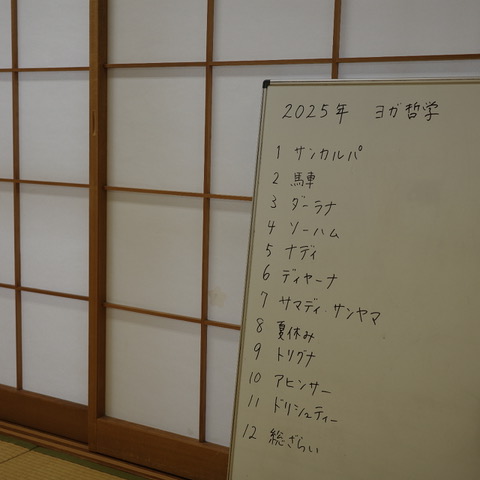 2025年 ヨガ哲学
1 サンカルパ
2 馬車
3 ダーラナ
4 ソーハム
5 ナディ
6 ディヤーナ
7 サマディ・サンヤマ
8 夏休み
9 トリグナ
10 アヒンサー
11 ドリシュティー
12 総ざらい